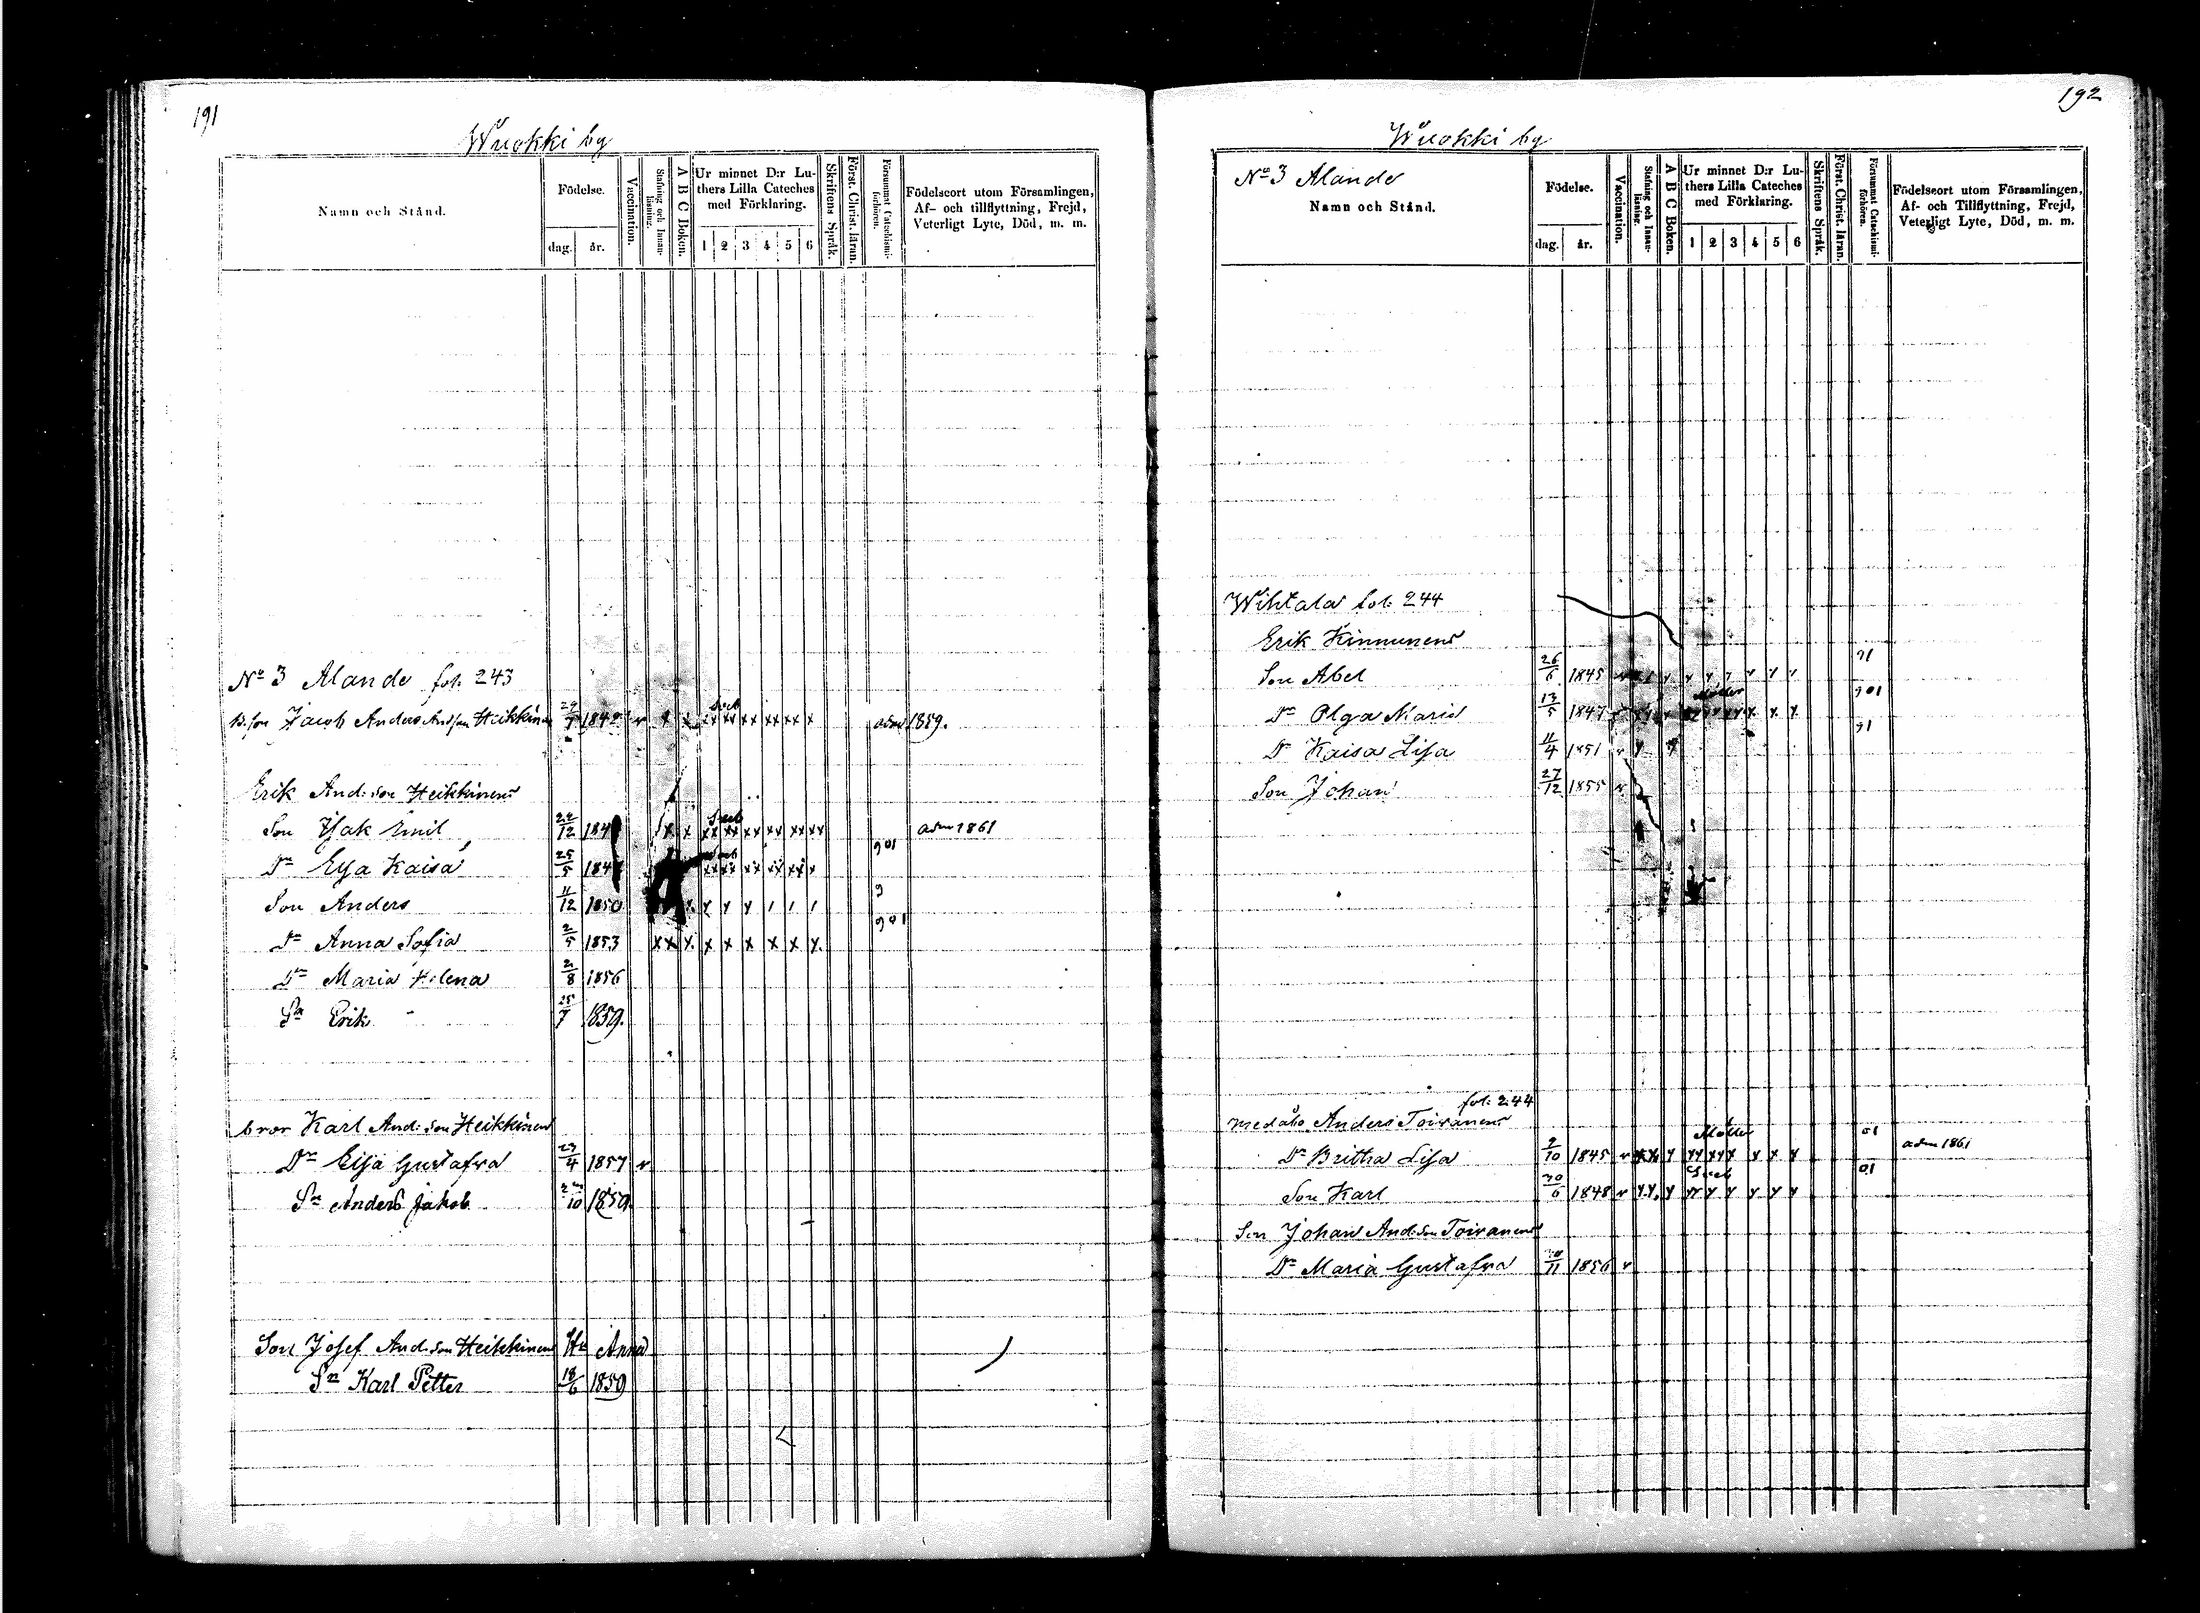 191
Wuokki by
Namn och Stånd.
Födelse.
dag. år.
Vaccination.
Stafning och Innanläsning.
A B C Boken.
Ur minnet D:r Luthers Lilla Cateches med Förklaring.
1 2 3 4 5 6
Skriftens Språk.
Först. Christ. läran.
Försummat Catechismiförhören.
Födelseort utom Församlingen,
Af- och tillflyttning, Frejd,
Veterligt Lyte, Död, m. m.
No 3 Alande fol. 243
Jacob Anders And:son Heikkinen 29/7 1842 v x x xx xx xx xx xx x adm 1859.
Erik And: son Heikkinens
Son Isak Emil 22/12 184 x x xx xx xx xx xx xx adm 1861
Dr Elsa Kaisa 25/5 184 xx xx xx xx xx x 901
Son Anders 11/12 1850 9
Dr Anna Sofia 2/5 1853 xx x x x x x x x 901
Dr Maria Helena 21/8 1856
Sn Erik 25/7 1859.
bror Karl And: son Heikkinens
Dr Elsa Gustafva 29/4 1857 v
Sn Anders Jakob /10 1859.
Son Josef And: son Heikkinens Hu Anna
Sn Karl Petter 18/6 1859
192
Wuokki by
No 3 Alande
Namn och Stånd.
Födelse.
dag. år.
Vaccination.
Stafning och Innanläsning.
A B C Boken.
Ur minnet D:r Luthers Lilla Cateches med Förklaring.
1 2 3 4 5 6
Skriftens Språk.
Först. Christ. läran.
Försummat Catechismiförhören.
Födelseort utom Församlingen,
Af- och Tillflyttning, Frejd,
Veterligt Lyte, Död, m. m.
Wihtala fol. 244
Erik Kinnunens
Son Abel 26/6 1845 91
Dr Olga Maria 13/5 1847 901
Dr Kaisa Lisa 11/4 1851 91
Son Johan 27/12 1855 v
fol. 244
medåbo Anders Toivanens
Dr Britha Lisa 9/10 1845 01 adm 1861
Son Karl 30/6 1848 01
Son Johan And: son Toivanens
Dr Maria Gustafva /11 1856 v